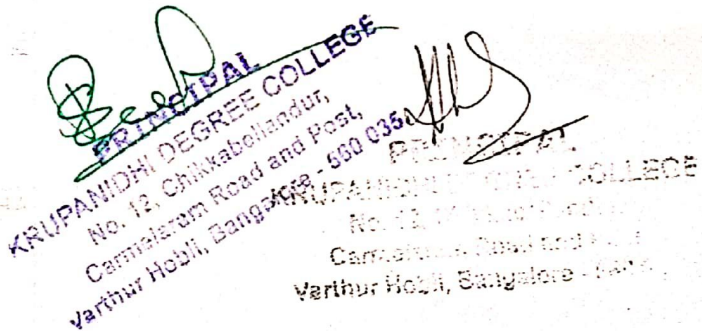 PRINCIPAL
KRUPANIDHI DEGREE COLLEGE
No. 12, Chikkabellandur,
Carmelaram Road and Post,
Varthur Hobli, Bangalore - 560 035
PRINCIPAL
KRUPANIDHI COLLEGE
No. 12,
Road and
Varthur Hobli, Bangalore -